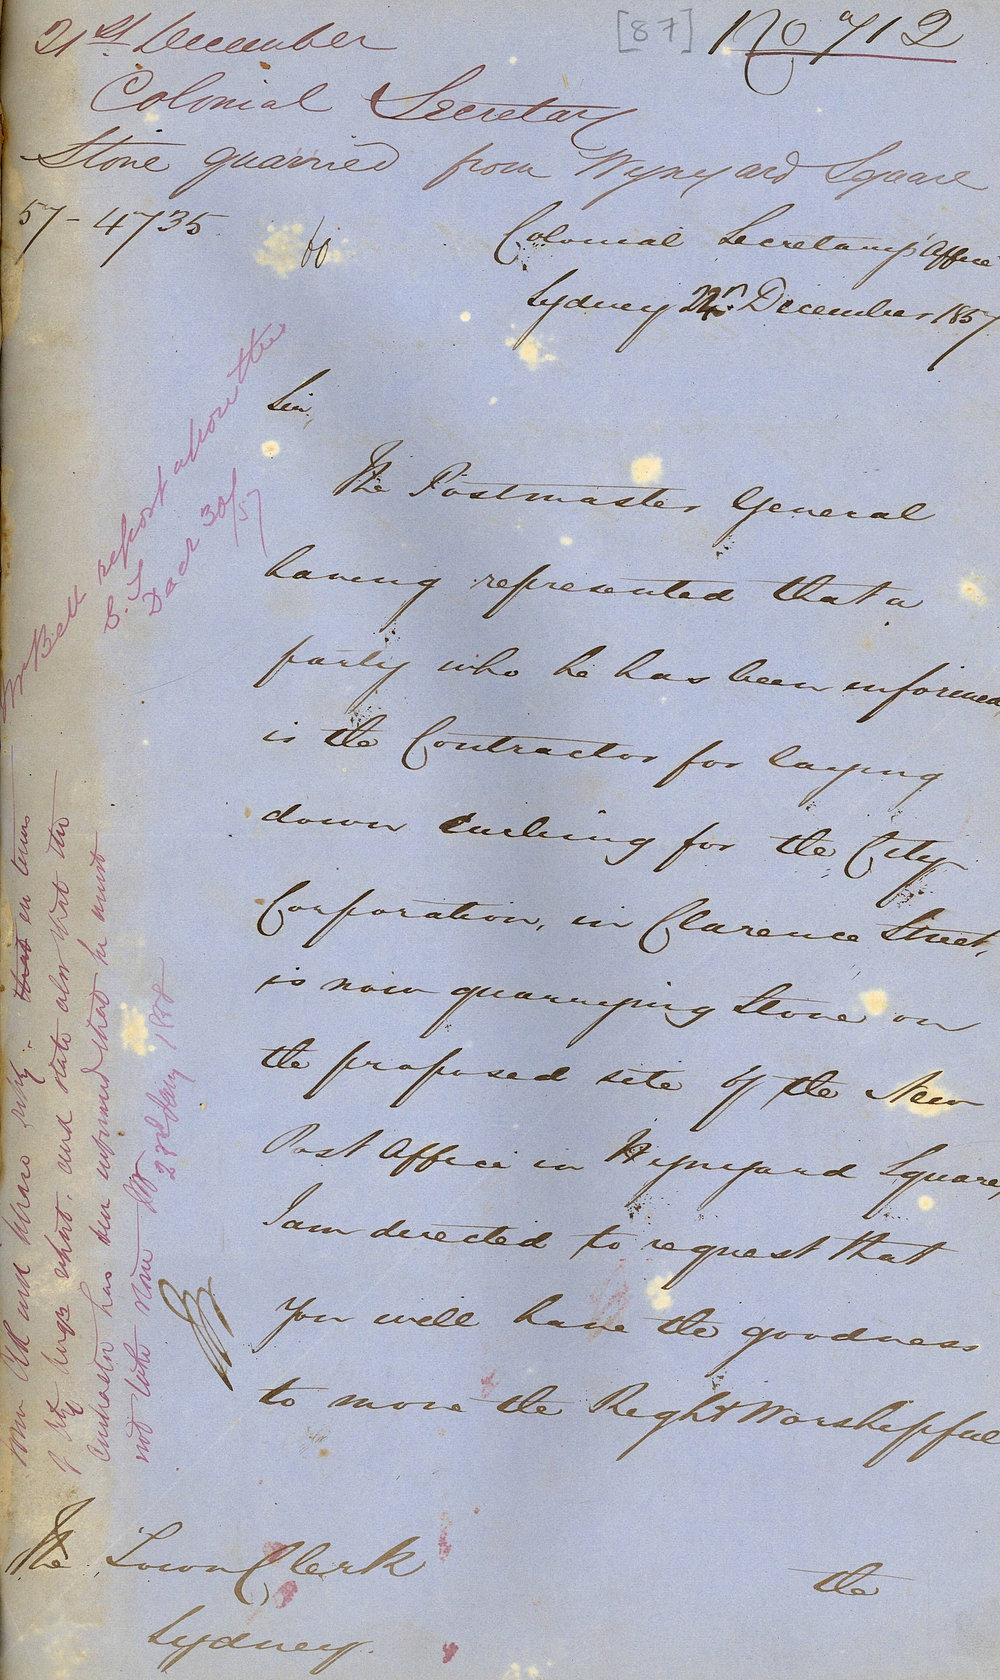 [87] No 712
21st December
Colonial Secretary
Stone quarried from Wynyard Square
57-4735
Colonial Secretary's Office
Sydney December 1857
Sir,
The Postmaster General
having represented that a
party who he has been informed
is the Contractor for laying
down curbing for the City
Corporation, in Clarence Street,
is now quarrying Stone on
the proposed site of the New
Post Office in Wynyard Square,
I am directed to request that
You will have the goodness
to move the Right Worshipful
the
The Town Clerk
Sydney.
Mr Bell report upon the
Decr 30/57
in terms
report, and state also that the
Contractor has been informed that he must
not take stone
23rd Jany 1858